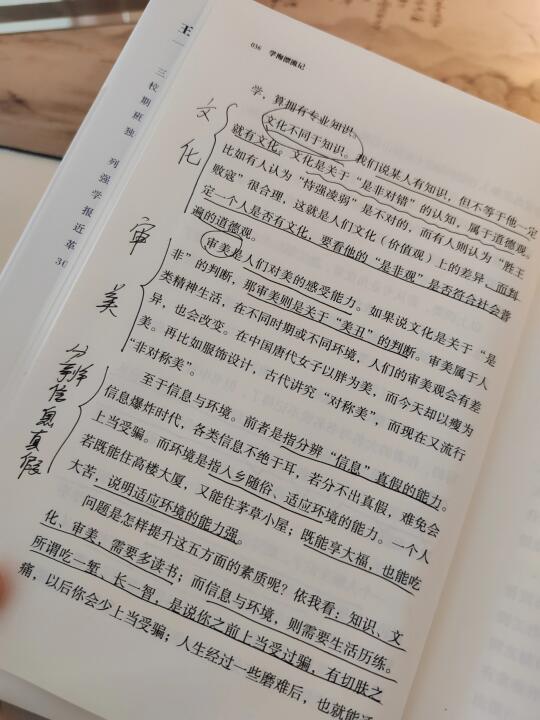 036 学海漂流记
学，算拥有专业知识。
文化不同于知识。我们说某人有知识，但不等于他一定
就有文化。文化是关于“是非对错”的认知，属于道德观。
比如有人认为“恃强凌弱”是不对的，而有人则认为“胜王
败寇”很合理，这就是人们文化（价值观）上的差异，而判
定一个人是否有文化，要看他的“是非观”是否符合社会普
遍的道德观。
审美是人们对美的感受能力。如果说文化是关于“是
非”的判断，那审美则是关于“美丑”的判断。审美属于人
类精神生活，在不同时期或不同环境，人们的审美观会有差
异，也会改变。在中国唐代女子以胖为美，而今天却以瘦为
美。再比如服饰设计，古代讲究“对称美”，而现在又流行
“非对称美”。
至于信息与环境。前者是指分辨“信息”真假的能力。
信息爆炸时代，各类信息不绝于耳，若分不出真假，难免会
上当受骗。而环境是指入乡随俗、适应环境的能力。一个人
若既能住高楼大厦，又能住茅草小屋；既能享大福，也能吃
大苦，说明适应环境的能力强。
问题是怎样提升这五方面的素质呢？依我看：知识、文
化、审美，需要多读书；而信息与环境，则需要生活历练。
所谓吃一堑、长一智，是说你之前上当受过骗，有切肤之
痛，以后你会少上当受骗；人生经过一些磨难后，也就能
文化
审美
分辨信息真假
王一
三校期班独
列强学报近革